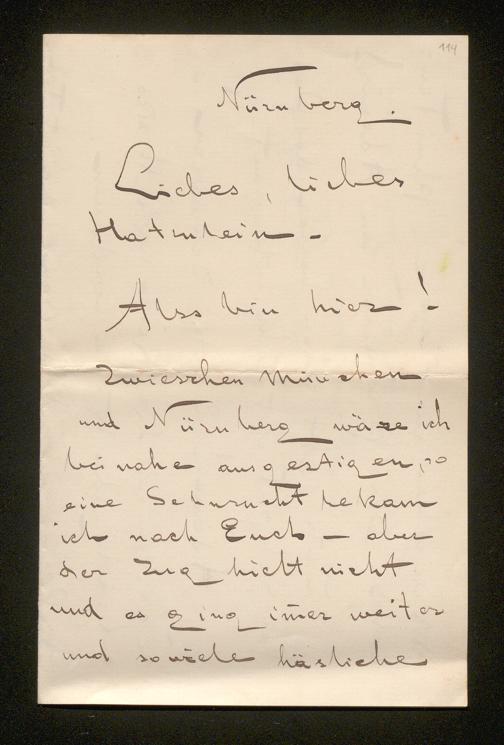 114
Nürnberg.
Liebes, liebes
Hatmlein -
Also bin hier!
Zwieschen München
und Nürnberg wäre ich
beinahe ausgestigen, so
eine Sehnsucht bekam
ich nach Euch - aber
der Zug hielt nicht
und es ging im̄er weiter
und soviele hässliche